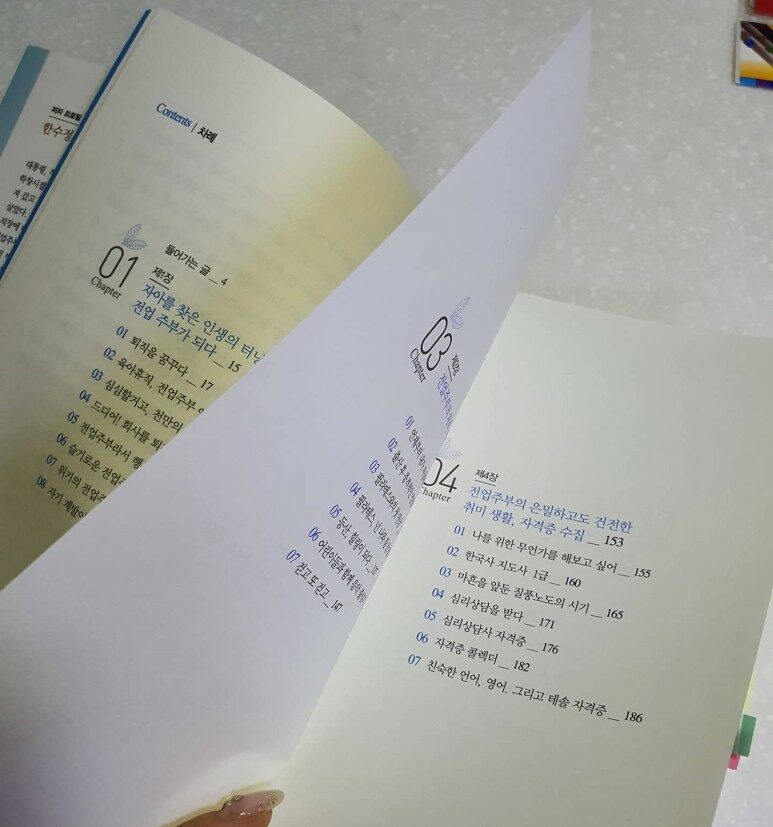 저자 프로필
한수정
대통령,
학창시절
져 갔고
살았다.
직장에
Contents | 차례
들어가는 글 _ 4
01
Chapter
제1장
자아를 찾은 인생의 터닝
전업 주부가 되다 _ 15
01 퇴직을 꿈꾸다 _ 17
02 육아휴직, 전업주부
03 심심할거고, 천만의
04 드디어! 회사를 퇴
05 전업주부라서 행
06 슬기로운 전업
07 위기의 전업주
08 자기 계발이
03
Chapter
제3장
01
02 출산 후
03 필라테스와의
04 필라테스, 넌 나의
05 등산, 힐링이 되다 _
06 어린이들과 함께
07 걷고 또 걷고 _ 147
04
Chapter
제4장
전업주부의 은밀하고도 건전한
취미 생활, 자격증 수집 _ 153
01 나를 위한 무언가를 해보고 싶어 _ 155
02 한국사 지도사 1급 _ 160
03 마흔을 앞둔 질풍노도의 시기 _ 165
04 심리상담을 받다 _ 171
05 심리상담사 자격증 _ 176
06 자격증 콜렉터 _ 182
07 친숙한 언어, 영어. 그리고 테솔 자격증 _ 186